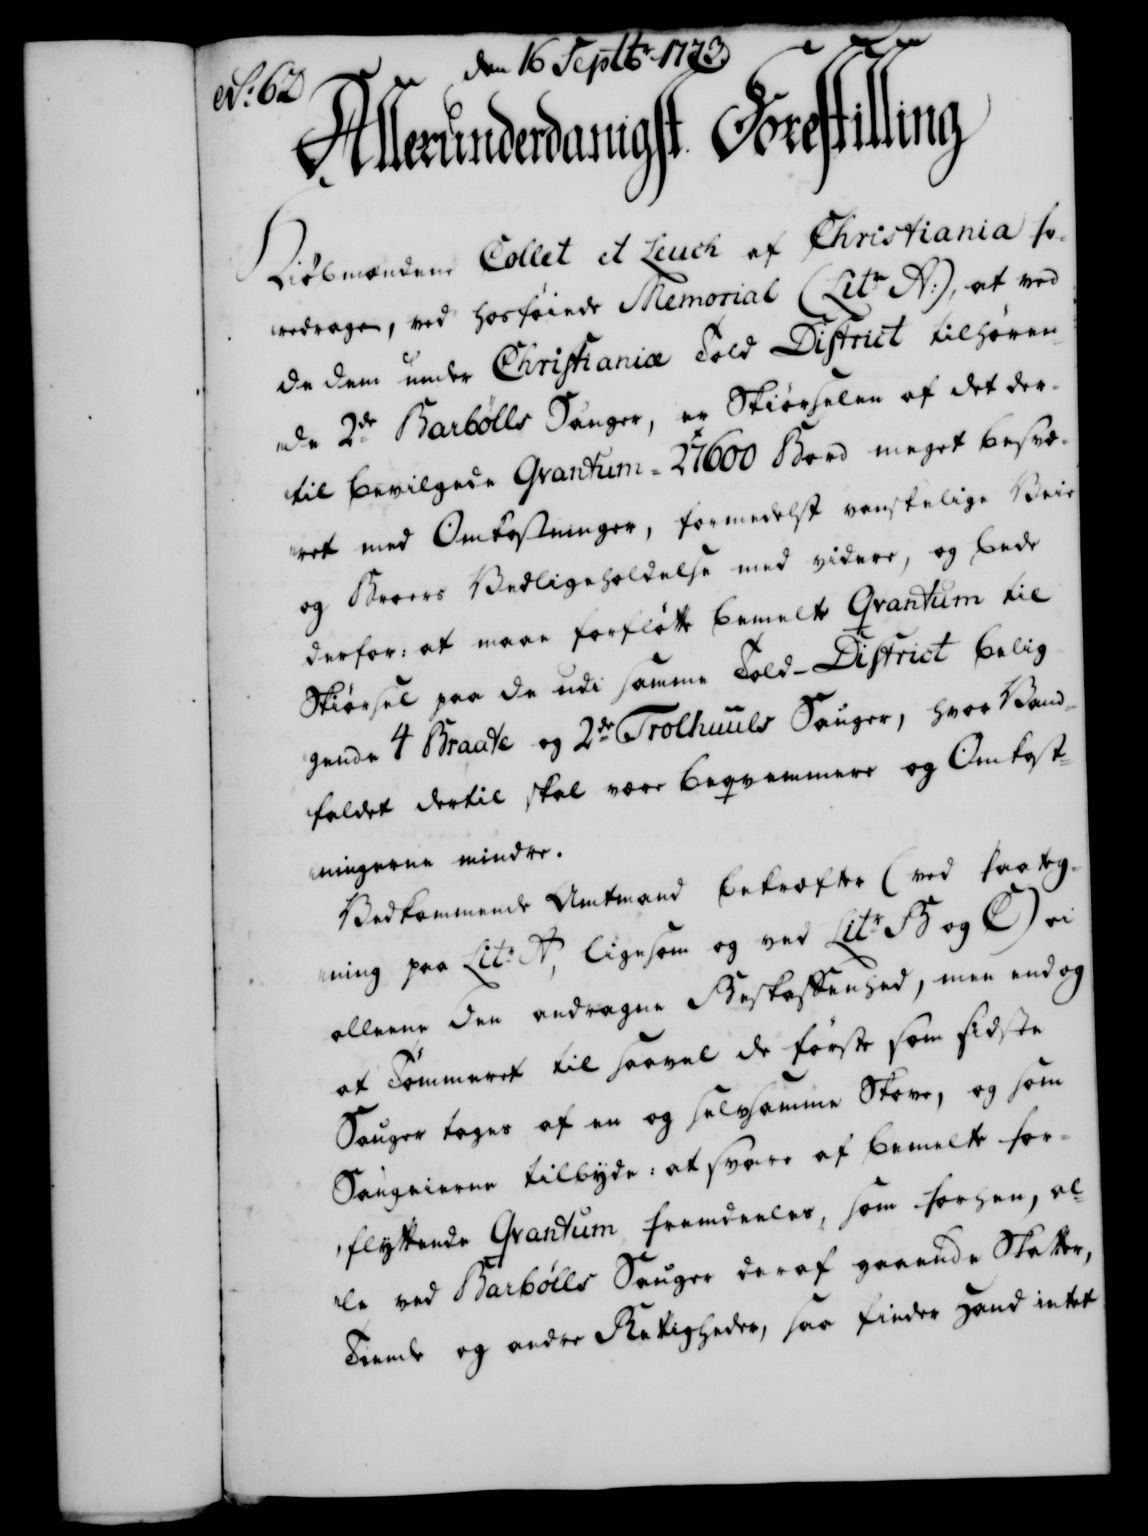 den 16 Septbr 1773.
No: 62
Allerunderdanigst Forestilling
Kiöbmændene Collet et Leuch af Christiania fo-
redrager, ved hosföiede Memorial (Litr A:), at ved
de dem under Christianiæ Told District tilhören-
de 2de Barbölls Sauger, er Skiörselen af det der-
til bevilgede Qvantum = 27600 Bord meget besvæ-
ret med Omkostninger, formedelst vanskelige Veie
og Broers Vedligeholdelse med videre, og bede
derfor: at maae forflötte bemelte Qvantum til
Skiörsel paa de udi samme Told-District belig
gende 4 Braate og 2de Trolhuuls Sauger, hvor Vand-
faldet dertil skal være beqvemmere og Omkost-
ningerne mindre.
Vedkommende Amtmand bekræfter (ved Paateg-
ning paa Litr A, ligesom og ved Litr B og C) ei
alleene den andragne Beskaffenhed, men endog
at Tömmeret til saavel de förste som sidste
Sauger tages af en og selvsamme Skove, og som
Saugeierne tilbyde: at svare af bemelte for-
flyttende Qvantum fremdeeles, som forhen, al-
le ved Barbölls Sauger deraf gaaende Skatter,
Tiende og andre Rettigheder, saa finder Hand intet